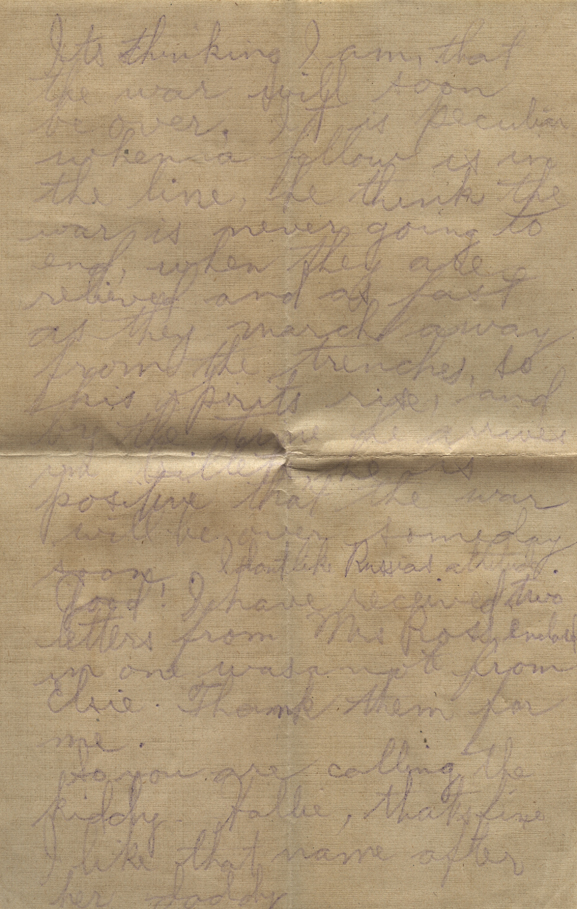 Its thinking I am, that
the war will soon
be over. It is peculiar
when a fellow is in
the line, he think the
war is never going to
end, when they are
relieved and as fast
as they march away
from the trenches, so
his spirits rise, and
by the time he arrives
in billets he is
positive that the war
will be over someday
soon. I dont like Russias attitude.
Good! I have received two
letters from Mrs Ross, Enclosed
in one was a note from
Elsie. Thank them for
me.
So you are calling the
kiddy Hallie, thats fine
I like that name after
her daddy